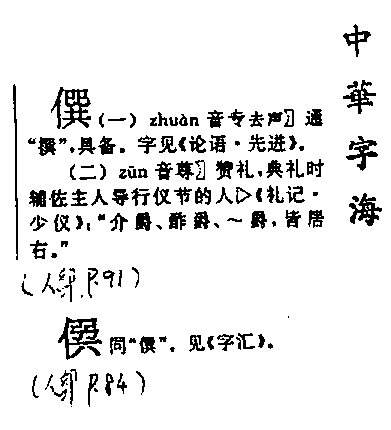 中華字海
僎(一)zhuàn 音专去声〗通
“撰”,具备。字见《论语·先进》。
(二)zūn 音尊〗赞礼,典礼时
辅佐主人导行仪节的人▷《礼记·
少仪》:“介爵、酢爵、～爵,皆居
右。”
(人部 P.91)
同“僎”。见《字汇》。
(人部 P.84)